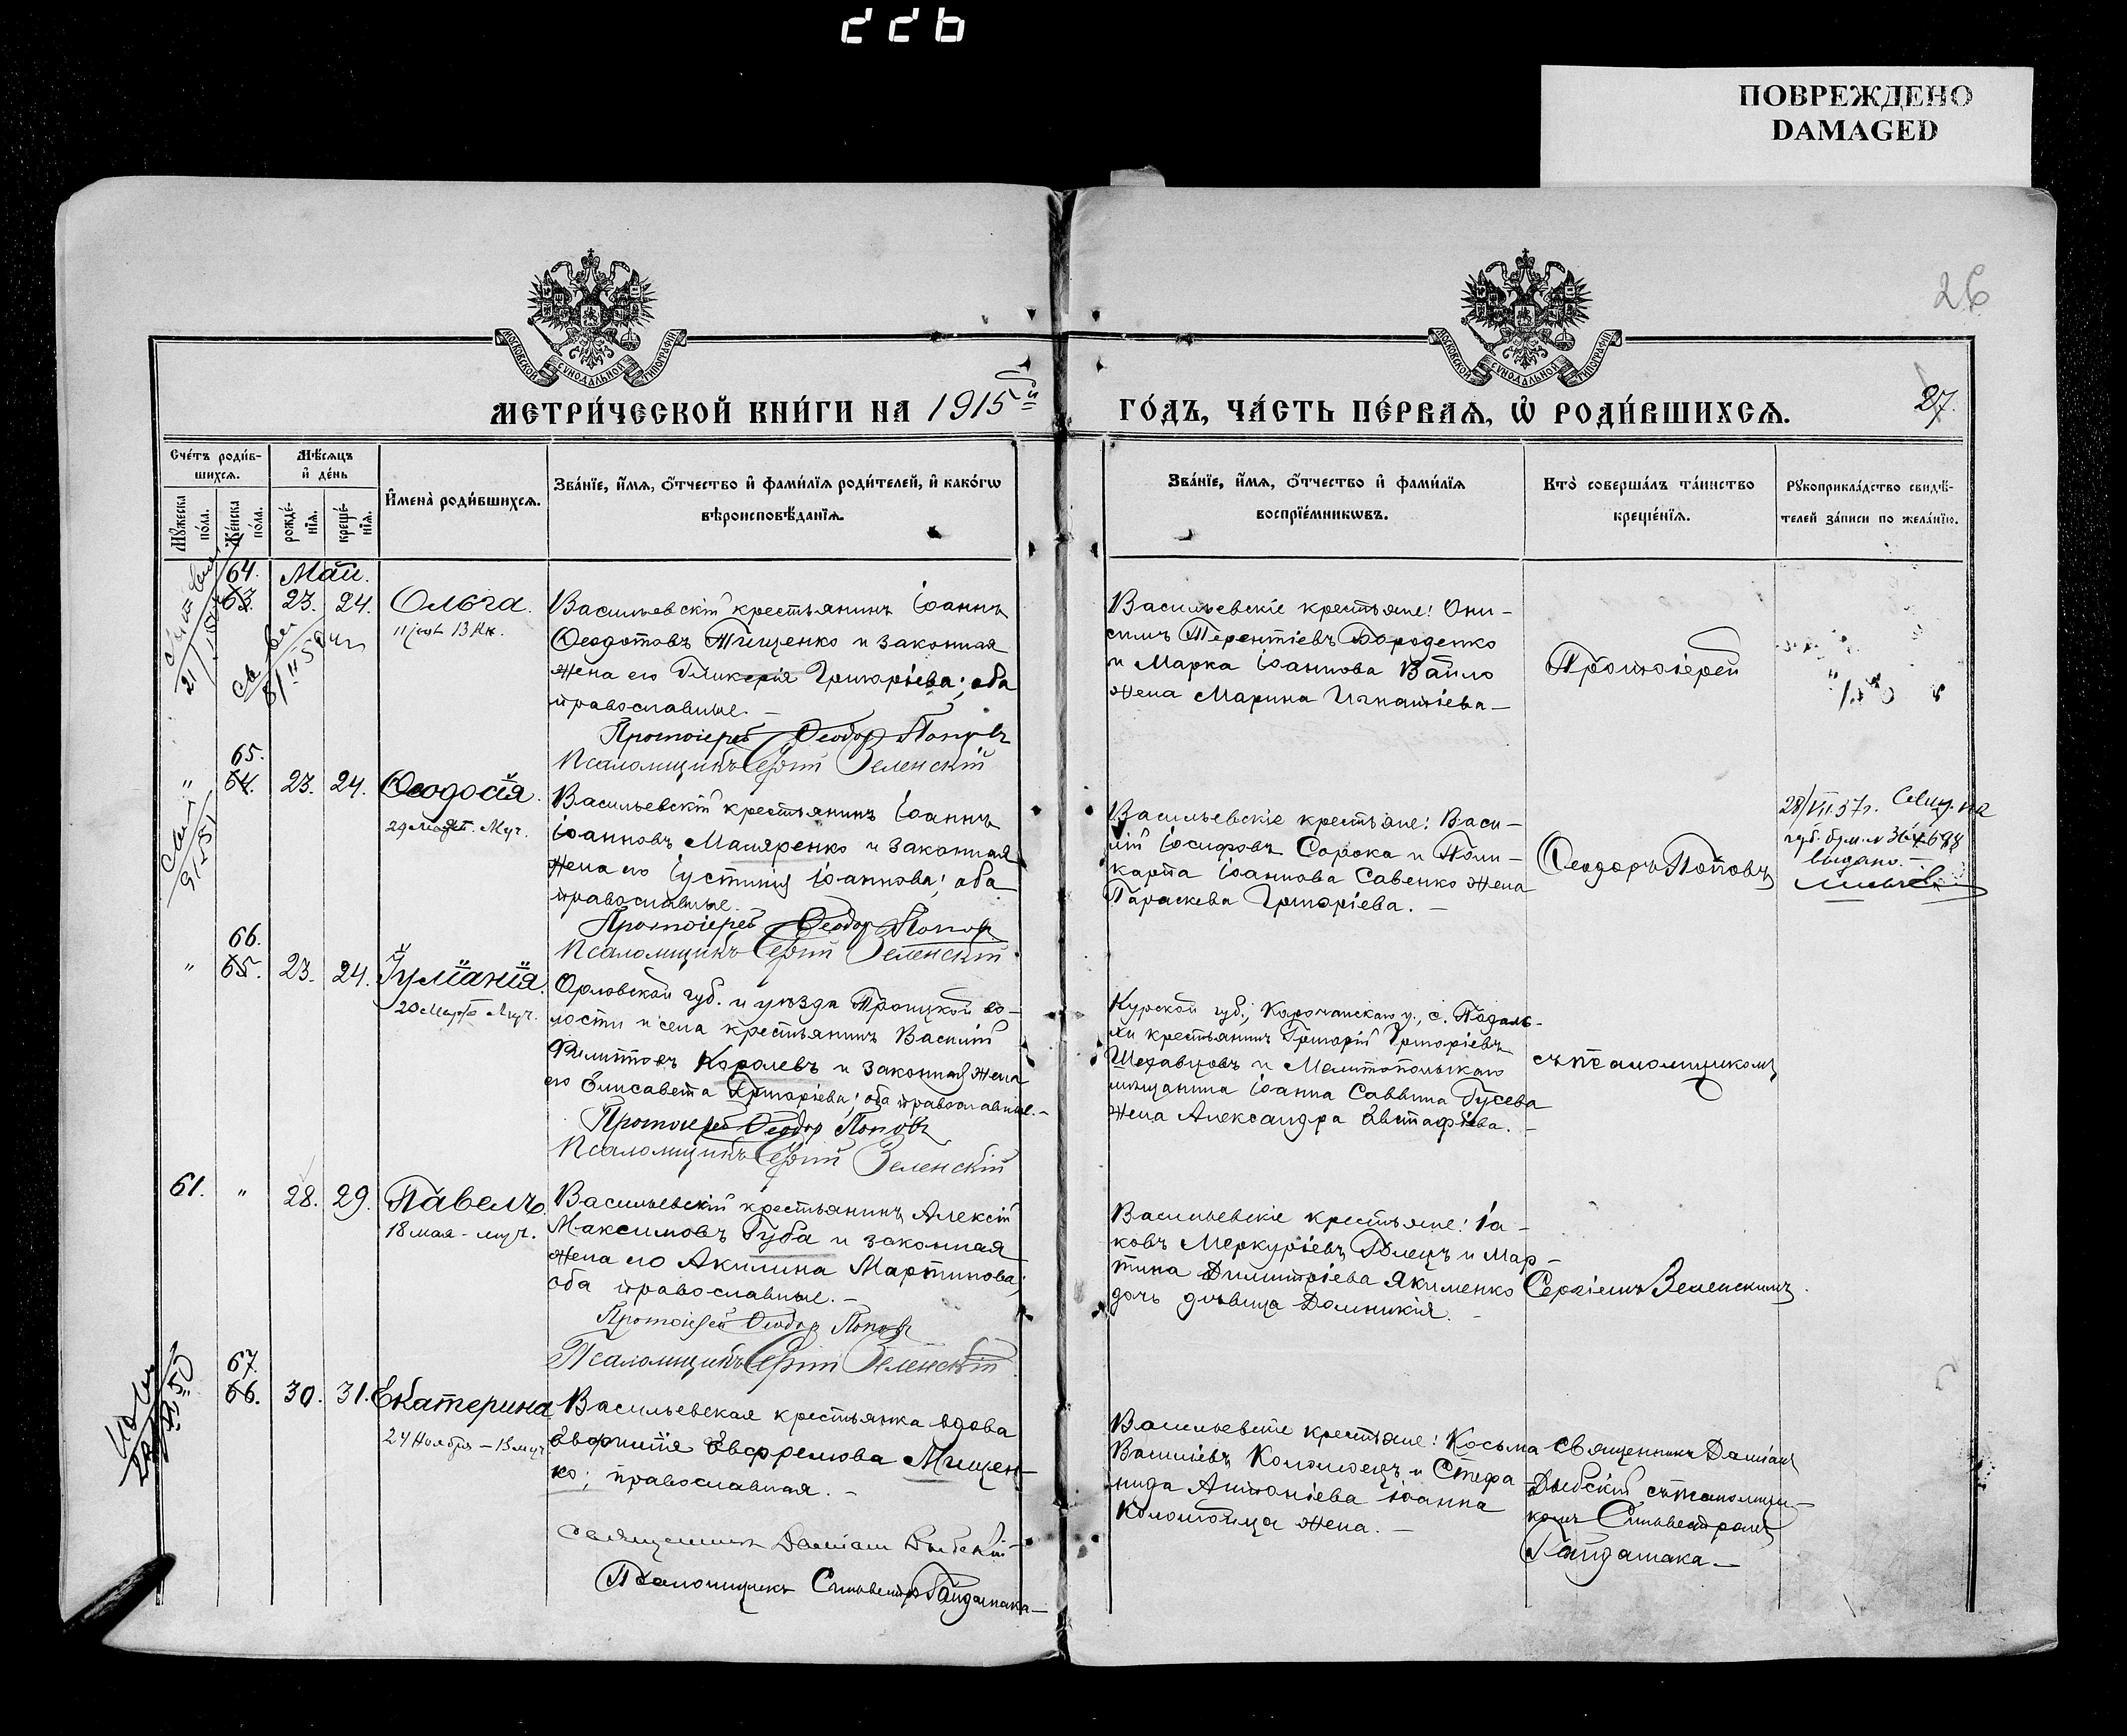 226
ПОВРЕЖДЕНО
DAMAGED
26
МОСКОВСКОЙ СѴНОДАЛЬНОЙ ТИПОГРАФІИ
МОСКОВСКОЙ СѴНОДАЛЬНОЙ ТИПОГРАФІИ
МЕТРИ́ЧЕСКОЙ КНИ́ГИ НА 1915й
ГО́ДЪ, ЧА́СТЬ ПЕ́РВАѦ, Ѡ҆ РОДИ́ВШИХСѦ.
27.
Сче́тъ роди́в-
шихсѧ.
Мꙋ́жеска
по́ла.
Же́нска
по́ла.
Мѣ́сѧцъ
и҆ де́нь
рожде́-
нїѧ.
креще́-
нїѧ.
И҆мена̀ роди́вшихсѧ.
Зва́нїе, и҆́мѧ, ѻ҆́тчество и҆ фами́лїѧ роди́телей, и҆ како́гѡ
вѣроисповѣ́данїѧ.
Зва́нїе, и҆́мѧ, ѻ҆́тчество и҆ фами́лїѧ
воспрїе́мникѡвъ.
Кто̀ соверша́лъ та́инство
креще́нїѧ.
Рꙋкоприкла́дство свидѣ́-
телей за́писи по жела́нїю.
Май.
64.
63. 23. 24. Ольга.
11 іюля 13 Кн.
Васильевскій крестьянинъ Іоаннъ
Ѳеодотовъ Тищенко и законная
жена его Гликерія Григоріева; оба
православные. –
Протоіерей Ѳеодоръ Поповъ
Псаломщикъ Сергій Зеленскій
Васильевскіе крестьяне: Они-
симъ Терентіевъ Бороденко
и Марка Іоаннова Вайло
жена Марина Игнатіева –
Протоіерей
65.
" 64. 23. 24. Ѳеодосія.
29 Мая Муч.
Васильевскій крестьянинъ Іоаннъ
Іоанновъ Маляренко и законная
жена его Іустинія Іоаннова; оба
православные.
Протоіерей Ѳеодоръ Поповъ
Псаломщикъ Сергій Зеленскій
Васильевскіе крестьяне: Васи-
лій Іосифовъ Сорока и Поли-
карпа Іоаннова Савенко жена
Параскева Григоріева. –
Ѳеодоръ Поповъ
28/VII.57г.
выдано. –
66.
" 65. 23. 24. Іуліанія.
20 Марта Муч.
Орловской губ. и уѣзда Троицкой во-
лости и села крестьянинъ Василій
Филипповъ Королевъ и законная жена
его Елисавета Григоріева; оба православные. –
Протоіерей Ѳеодоръ Поповъ
Псаломщикъ Сергій Зеленскій
Курской губ., Корочанскаго у., с.
крестьянинъ Григорій Григоріевъ
и Мелитопольскаго
мѣщанина Іоанна Саввина Гусева
жена Александра Евстафіева. –
съ псаломщикомъ
61. " 28. 29. Павелъ.
18 мая – муч.
Васильевскій крестьянинъ Алексій
Максимовъ Губа и законная
жена его Акилина Мартинова;
оба православные. –
Протоіерей Ѳеодоръ Поповъ
Псаломщикъ Сергій Зеленскій
Васильевскіе крестьяне: Іа-
ковъ Меркуріевъ Голецъ и Мар-
тина Димитріева Якименко
дочь дѣвица Домникія. –
Сергіемъ Зеленскимъ.
67.
66. 30. 31. Екатерина
24 Ноября – В муч.
Васильевская крестьянка вдова
Евфимія Евфремова Мищен-
ко; православная. –
Священникъ Даміанъ Дыбскій
Псаломщикъ Сильвестръ Гайдамака –
Васильевскіе крестьяне: Косьма
Василіевъ Коломоецъ и Стефа-
нида Антоніева Іоанна
Коломойца жена. –
Священникъ Даміанъ
Дыбскій съ псаломщи-
комъ Сильвестромъ
Гайдамака. –